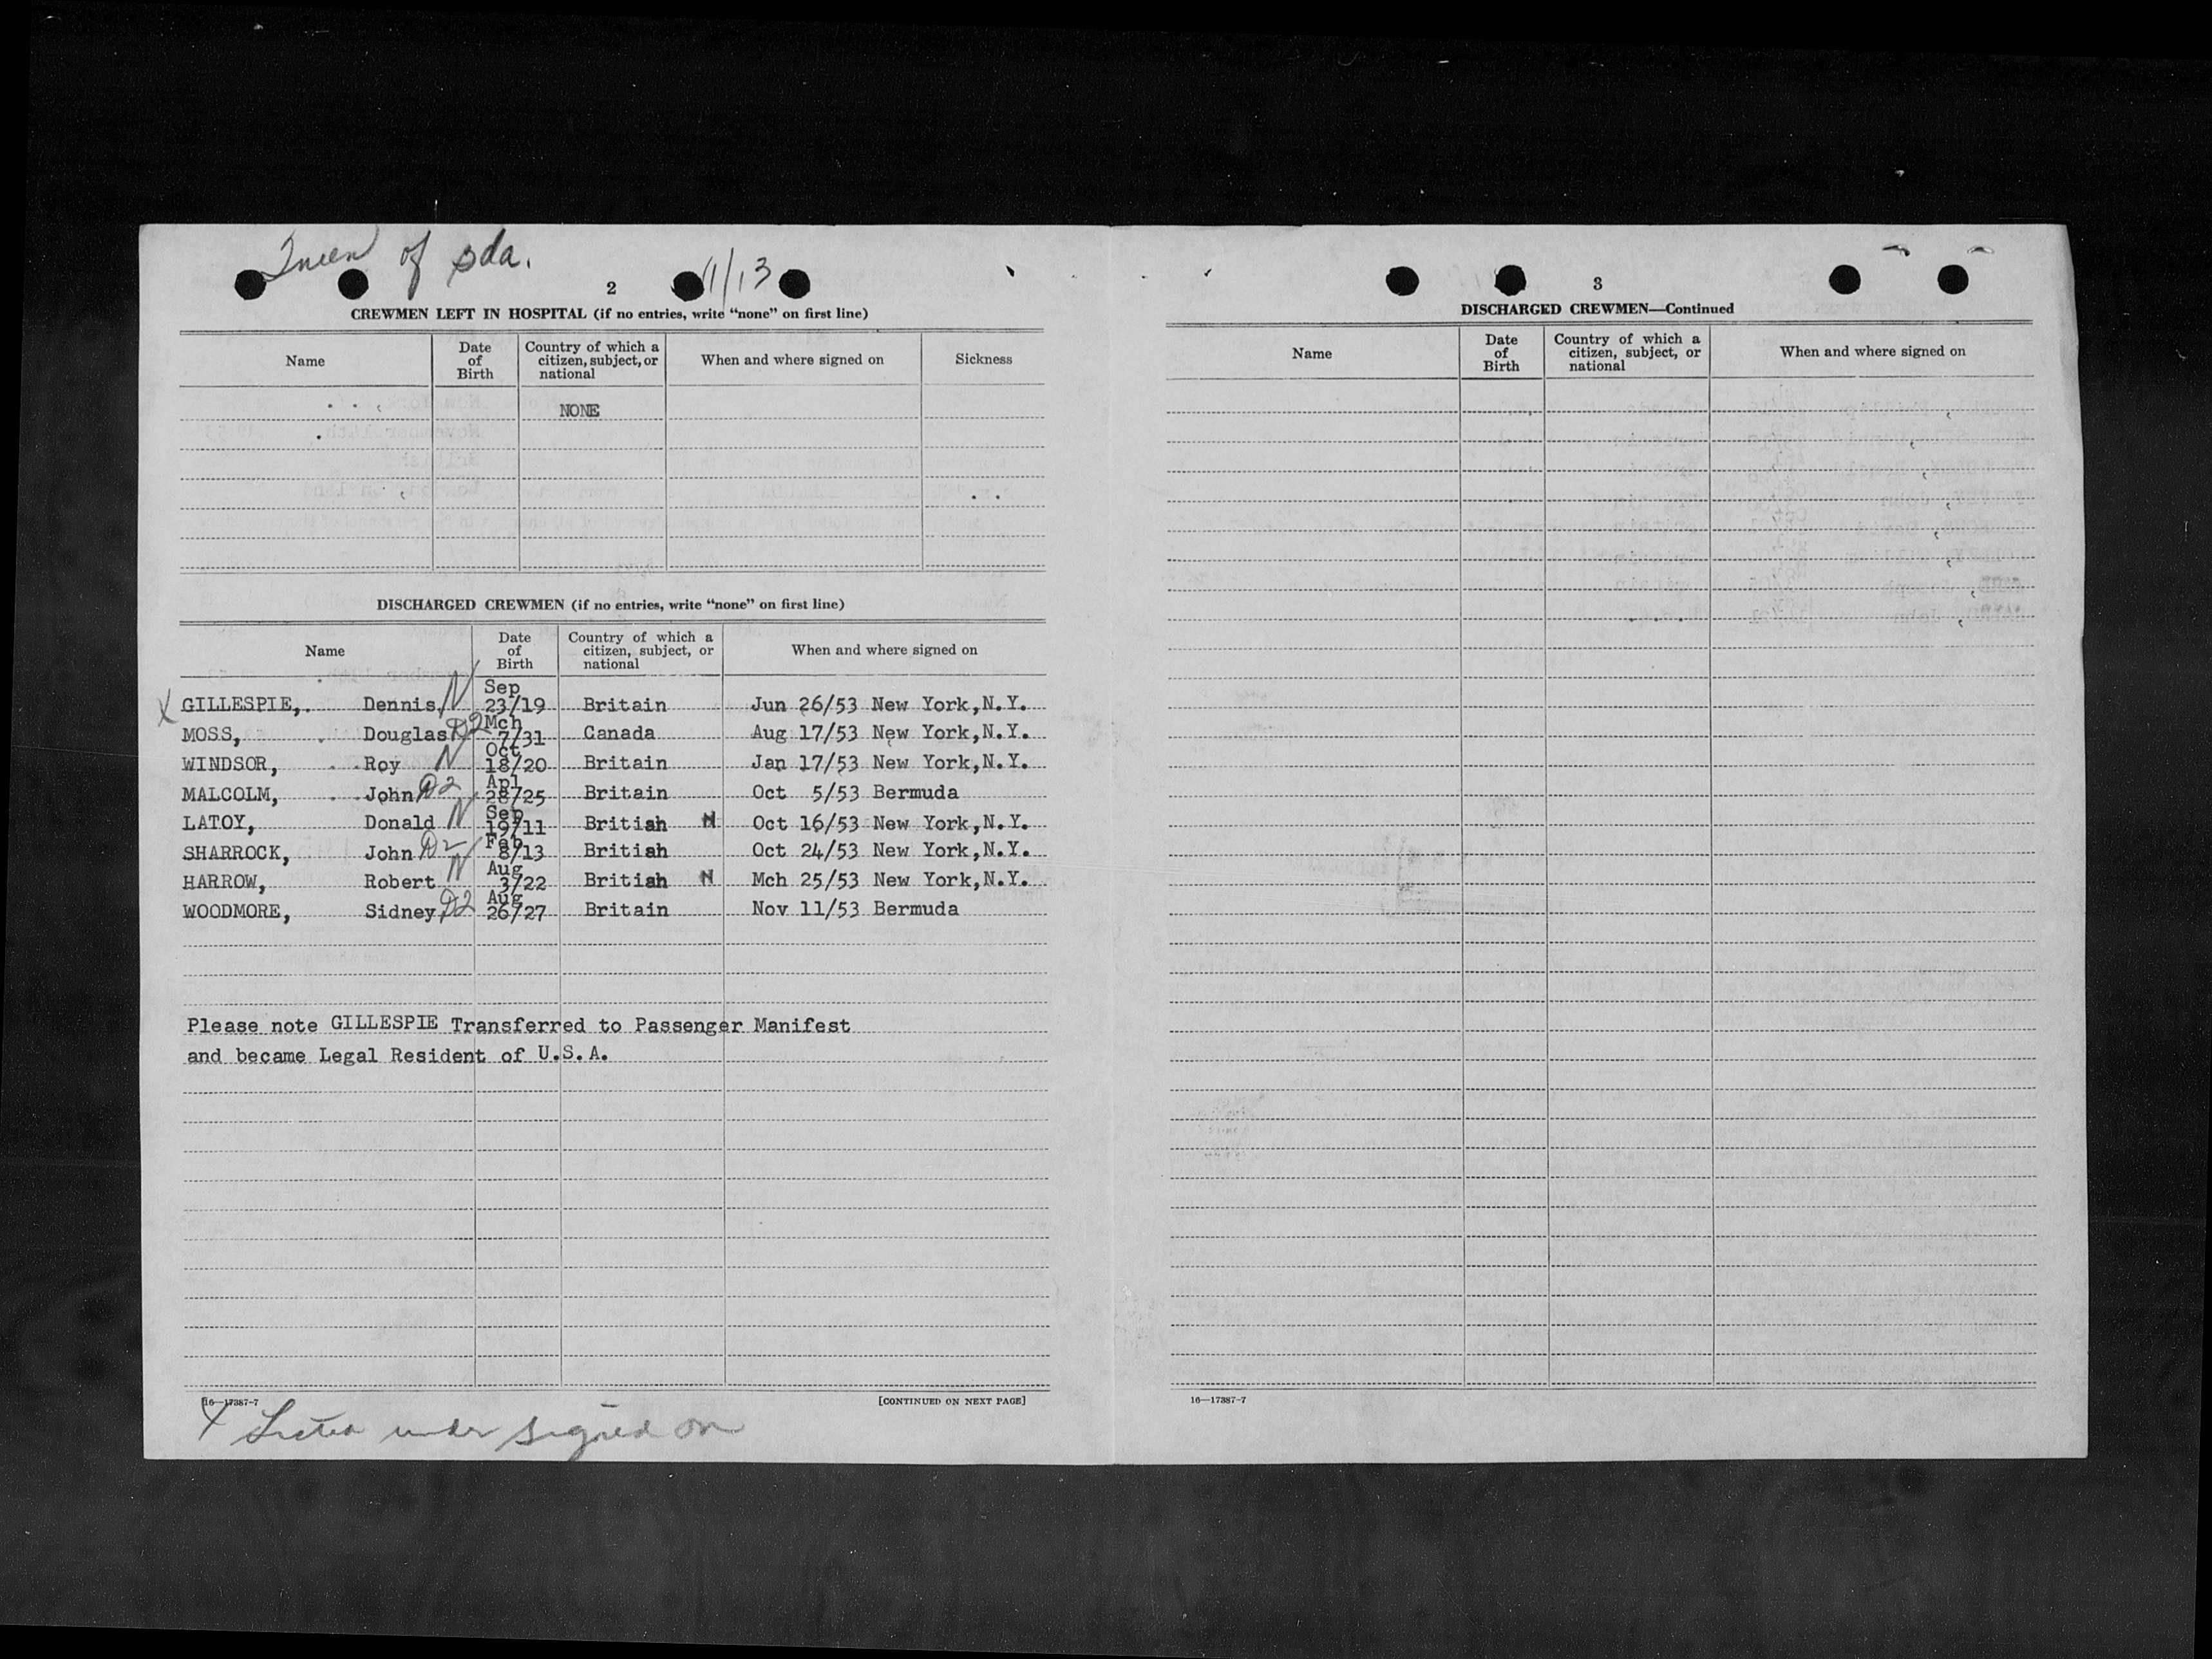 Queen of Bda. 11/13
2
CREWMEN LEFT IN HOSPITAL (if no entries, write “none” on first line)
Name Date of Birth Country of which a citizen, subject, or national When and where signed on Sickness
NONE
DISCHARGED CREWMEN (if no entries, write “none” on first line)
Name Date of Birth Country of which a citizen, subject, or national When and where signed on
X GILLESPIE, Dennis N Sep 23/19 Britain Jun 26/53 New York, N.Y.
MOSS, Douglas D2 Mch 7/31 Canada Aug 17/53 New York, N.Y.
WINDSOR, Roy N Oct 18/20 Britain Jan 17/53 New York, N.Y.
MALCOLM, John D2 Apl 28/25 Britain Oct 5/53 Bermuda
LATOY, Donald N Sep 19/11 British N Oct 16/53 New York, N.Y.
SHARROCK, John D2 Feb 8/13 British Oct 24/53 New York, N.Y.
HARROW, Robert N Aug 3/22 British N Mch 25/53 New York, N.Y.
WOODMORE, Sidney D2 Aug 26/27 Britain Nov 11/53 Bermuda
Please note GILLESPIE Transferred to Passenger Manifest
and became Legal Resident of U.S.A.
16—17387-7 [CONTINUED ON NEXT PAGE]
X Listed under signed on
3
DISCHARGED CREWMEN—Continued
Name Date of Birth Country of which a citizen, subject, or national When and where signed on
16—17387-7